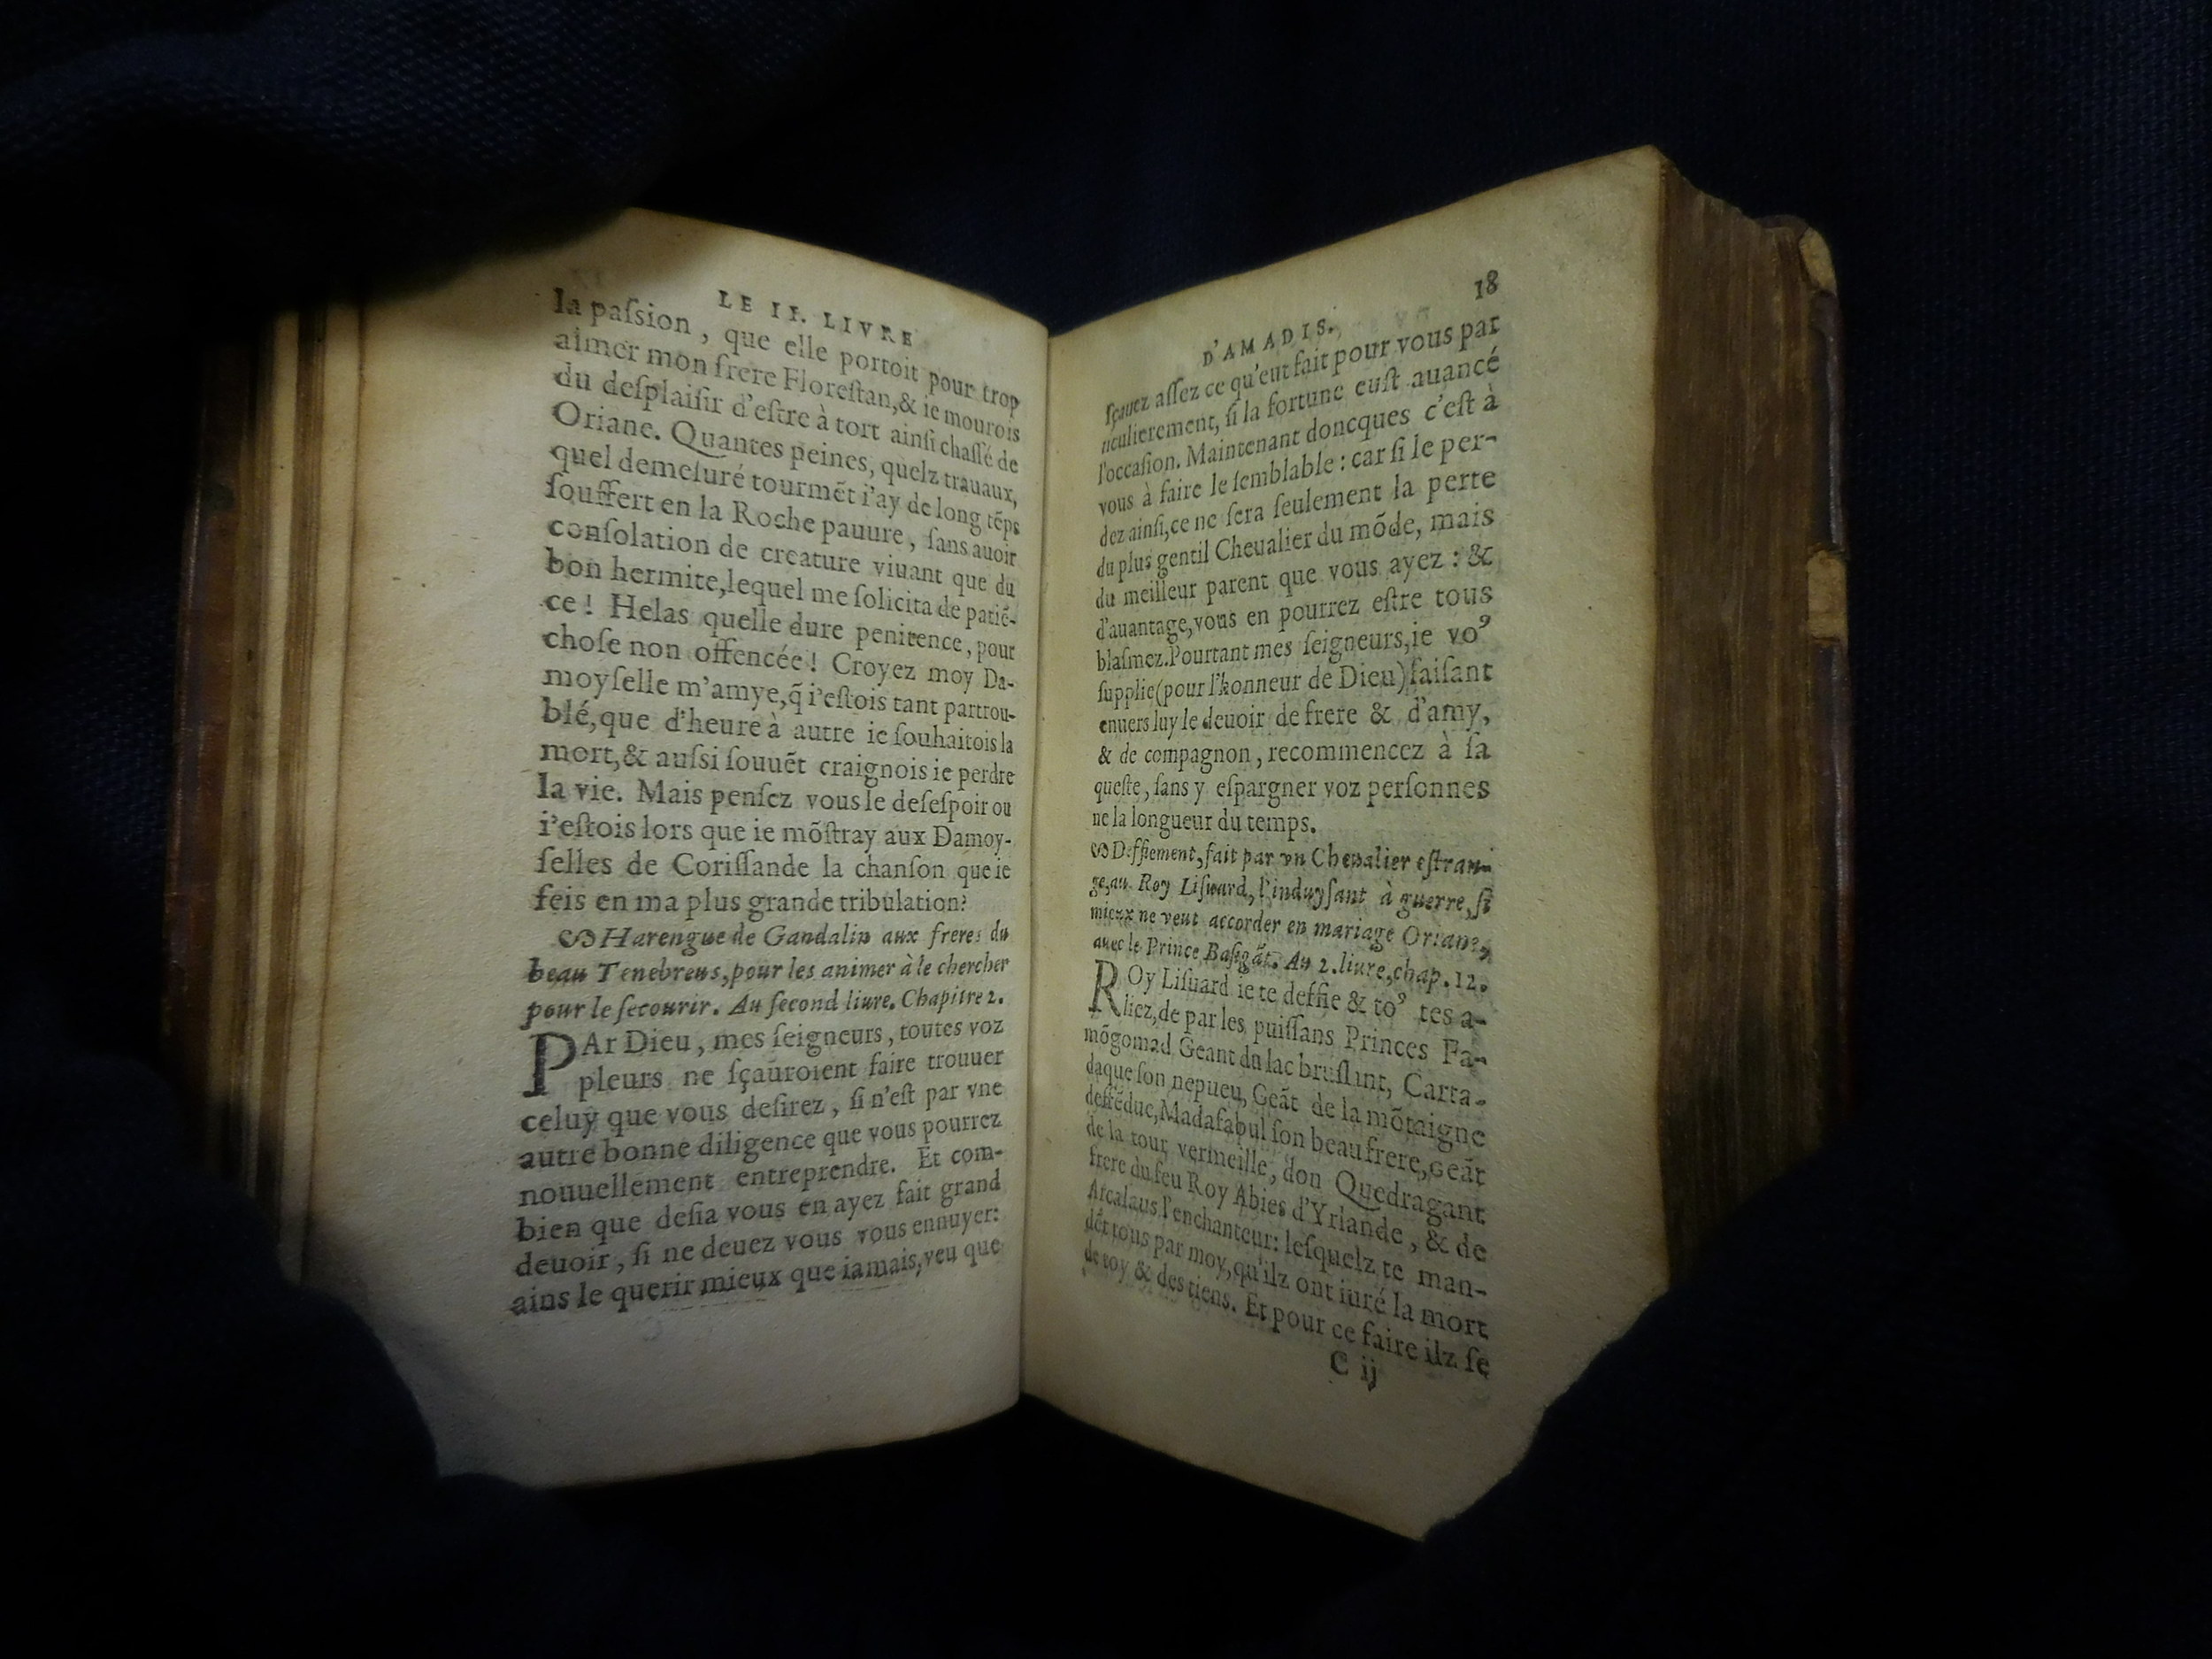 LE II. LIVRE
la paſsion, que elle portoit pour trop
aimer mon frere Floreſtan,& ie mourois
du deſplaiſir d'eſtre à tort ainſi chaſſé de
Oriane. Quantes peines, quelz trauaux,
quel demeſuré tourmẽt i'ay de long tẽps
ſouffert en la Roche pauure, ſans auoir
conſolation de creature viuant que du
bon hermite,lequel me ſolicita de patiẽ-
ce! Helas quelle dure penitence, pour
choſe non offencée! Croyez moy Da-
moyſelle m'amye,q̃ i'eſtois tant partrou-
blé,que d'heure à autre ie ſouhaitois la
mort,& auſsi ſouuẽt craignois ie perdre
la vie. Mais penſez vous le deſeſpoir ou
i'eſtois lors que ie mõſtray aux Damoy-
ſelles de Coriſſande la chanſon que ie
feis en ma plus grande tribulation?
Harengue de Gandalin aux freres du
beau Tenebreus,pour les animer à le chercher
pour le ſecourir. Au ſecond liure. Chapitre 2.
PAr Dieu, mes ſeigneurs, toutes voz
pleurs ne ſçauroient faire trouuer
celuy que vous deſirez, ſi n'eſt par vne
autre bonne diligence que vous pourrez
nouuellement entreprendre. Et com-
bien que deſia vous en ayez fait grand
deuoir, ſi ne deuez vous vous ennuyer:
ains le querir mieux que iamais,veu que
D'AMADIS. 18
ſçauez aſſez ce qu'eut fait pour vous par
ticulierement, ſi la fortune euſt auancé
l'occaſion. Maintenant doncques c'eſt à
vous à faire le ſemblable: car ſi le per-
dez ainſi,ce ne ſera ſeulement la perte
du plus gentil Cheualier du mõde, mais
du meilleur parent que vous ayez: &
d'auantage,vous en pourrez eſtre tous
blaſmez.Pourtant mes ſeigneurs,ie vo⁹
ſupplie(pour l'honneur de Dieu)faiſant
enuers luy le deuoir de frere & d'amy,
& de compagnon, recommencez à ſa
queſte, ſans y eſpargner voz perſonnes
ne la longueur du temps.
Deffiement, fait par vn Cheualier eſtran-
ge,au Roy Liſuard, l'induyſant à guerre, ſi
mieux ne veut accorder en mariage Oriane,
auec le Prince Baſigãt. Au 2.liure,chap.12.
ROy Liſuard ie te deffie & to⁹ tes a-
liez,de par les puiſſans Princes Fa-
mõgomad Geant du lac bruſlant, Carta-
daque ſon nepueu, Geãt de la mõtaigne
deffẽdue,Madafabul ſon beaufrere,Geãt
de la tour vermeille, don Quedragant
frere du feu Roy Abies d'Yrlande, & de
Arcalaus l'enchanteur: leſquelz te man-
dẽt tous par moy,qu'ilz ont iuré la mort
de toy & des tiens. Et pour ce faire ilz ſe
C ij